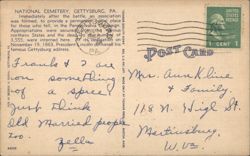 NATIONAL CEMETERY, GETTYSBURG, PA.
Immediately after the battle, an association
was formed, to provide a permanent resting place
for those who fell in the Pennsylvania Campaign.
Appropriations were secured from the several
northern States and the
November 19, 1863. President Lincoln delivered his
famous Gettysburg address.
POST CARD
1 CENT 1
Frank & I are
on something
of a spree!
Just think
Old Married people
too.
Zella
Mrs. Ann Kline
& Family.
118 N. High St.
Martinsburg,
W. Va.